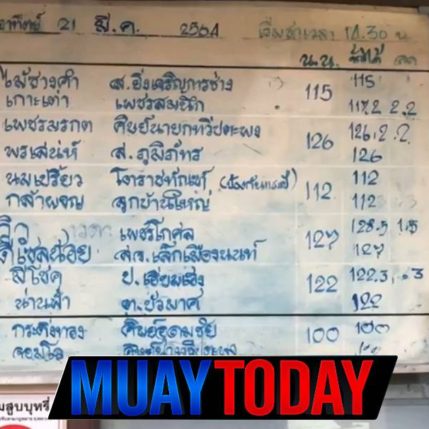 อาทิตย์ 21 มี.ค. 2564 เริ่มชกเวลา 14.30 น
น.น. ชั่งได้ ลด
ไม้ซางคำ ส.ยิ่งเจริญการช่าง 115 115
เกาะเต่า เพชรสมนึก 117.2 2.2
เพชรมรกต ศิษย์นายก 126 126.2 .2
พรเสน่ห์ ส.ภูมิภัทร 126
นมเปรี้ยว 112 112
กล้าผจญ ลูกบ้านใหญ่ 112
เพชรโกศล 127 128.5 1.5
ส.จ.เล็กเมืองนนท์ 127
สิโชค ป. 122 122.3 .3
น่านฟ้า 122
กระทิงทอง ศิษย์อุดมชัย 100 100
จอมโว
MUAYTODAY
มสูบบุหรี่